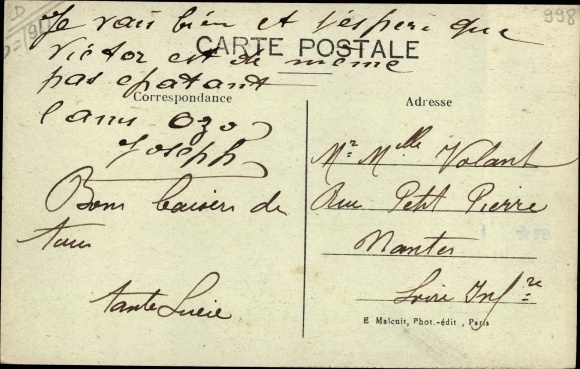 Je vais bien et j'espere que
Victor est de meme
CARTE POSTALE
pas epatant
Correspondance
l'ami Ozo
Joseph
Bons baisers de
tous
tante Lucie
Adresse
Mr Melle Volant
Rue Petit Pierre
Nantes
Loire Infre
E Malcuit, Phot.-édit., Paris
998